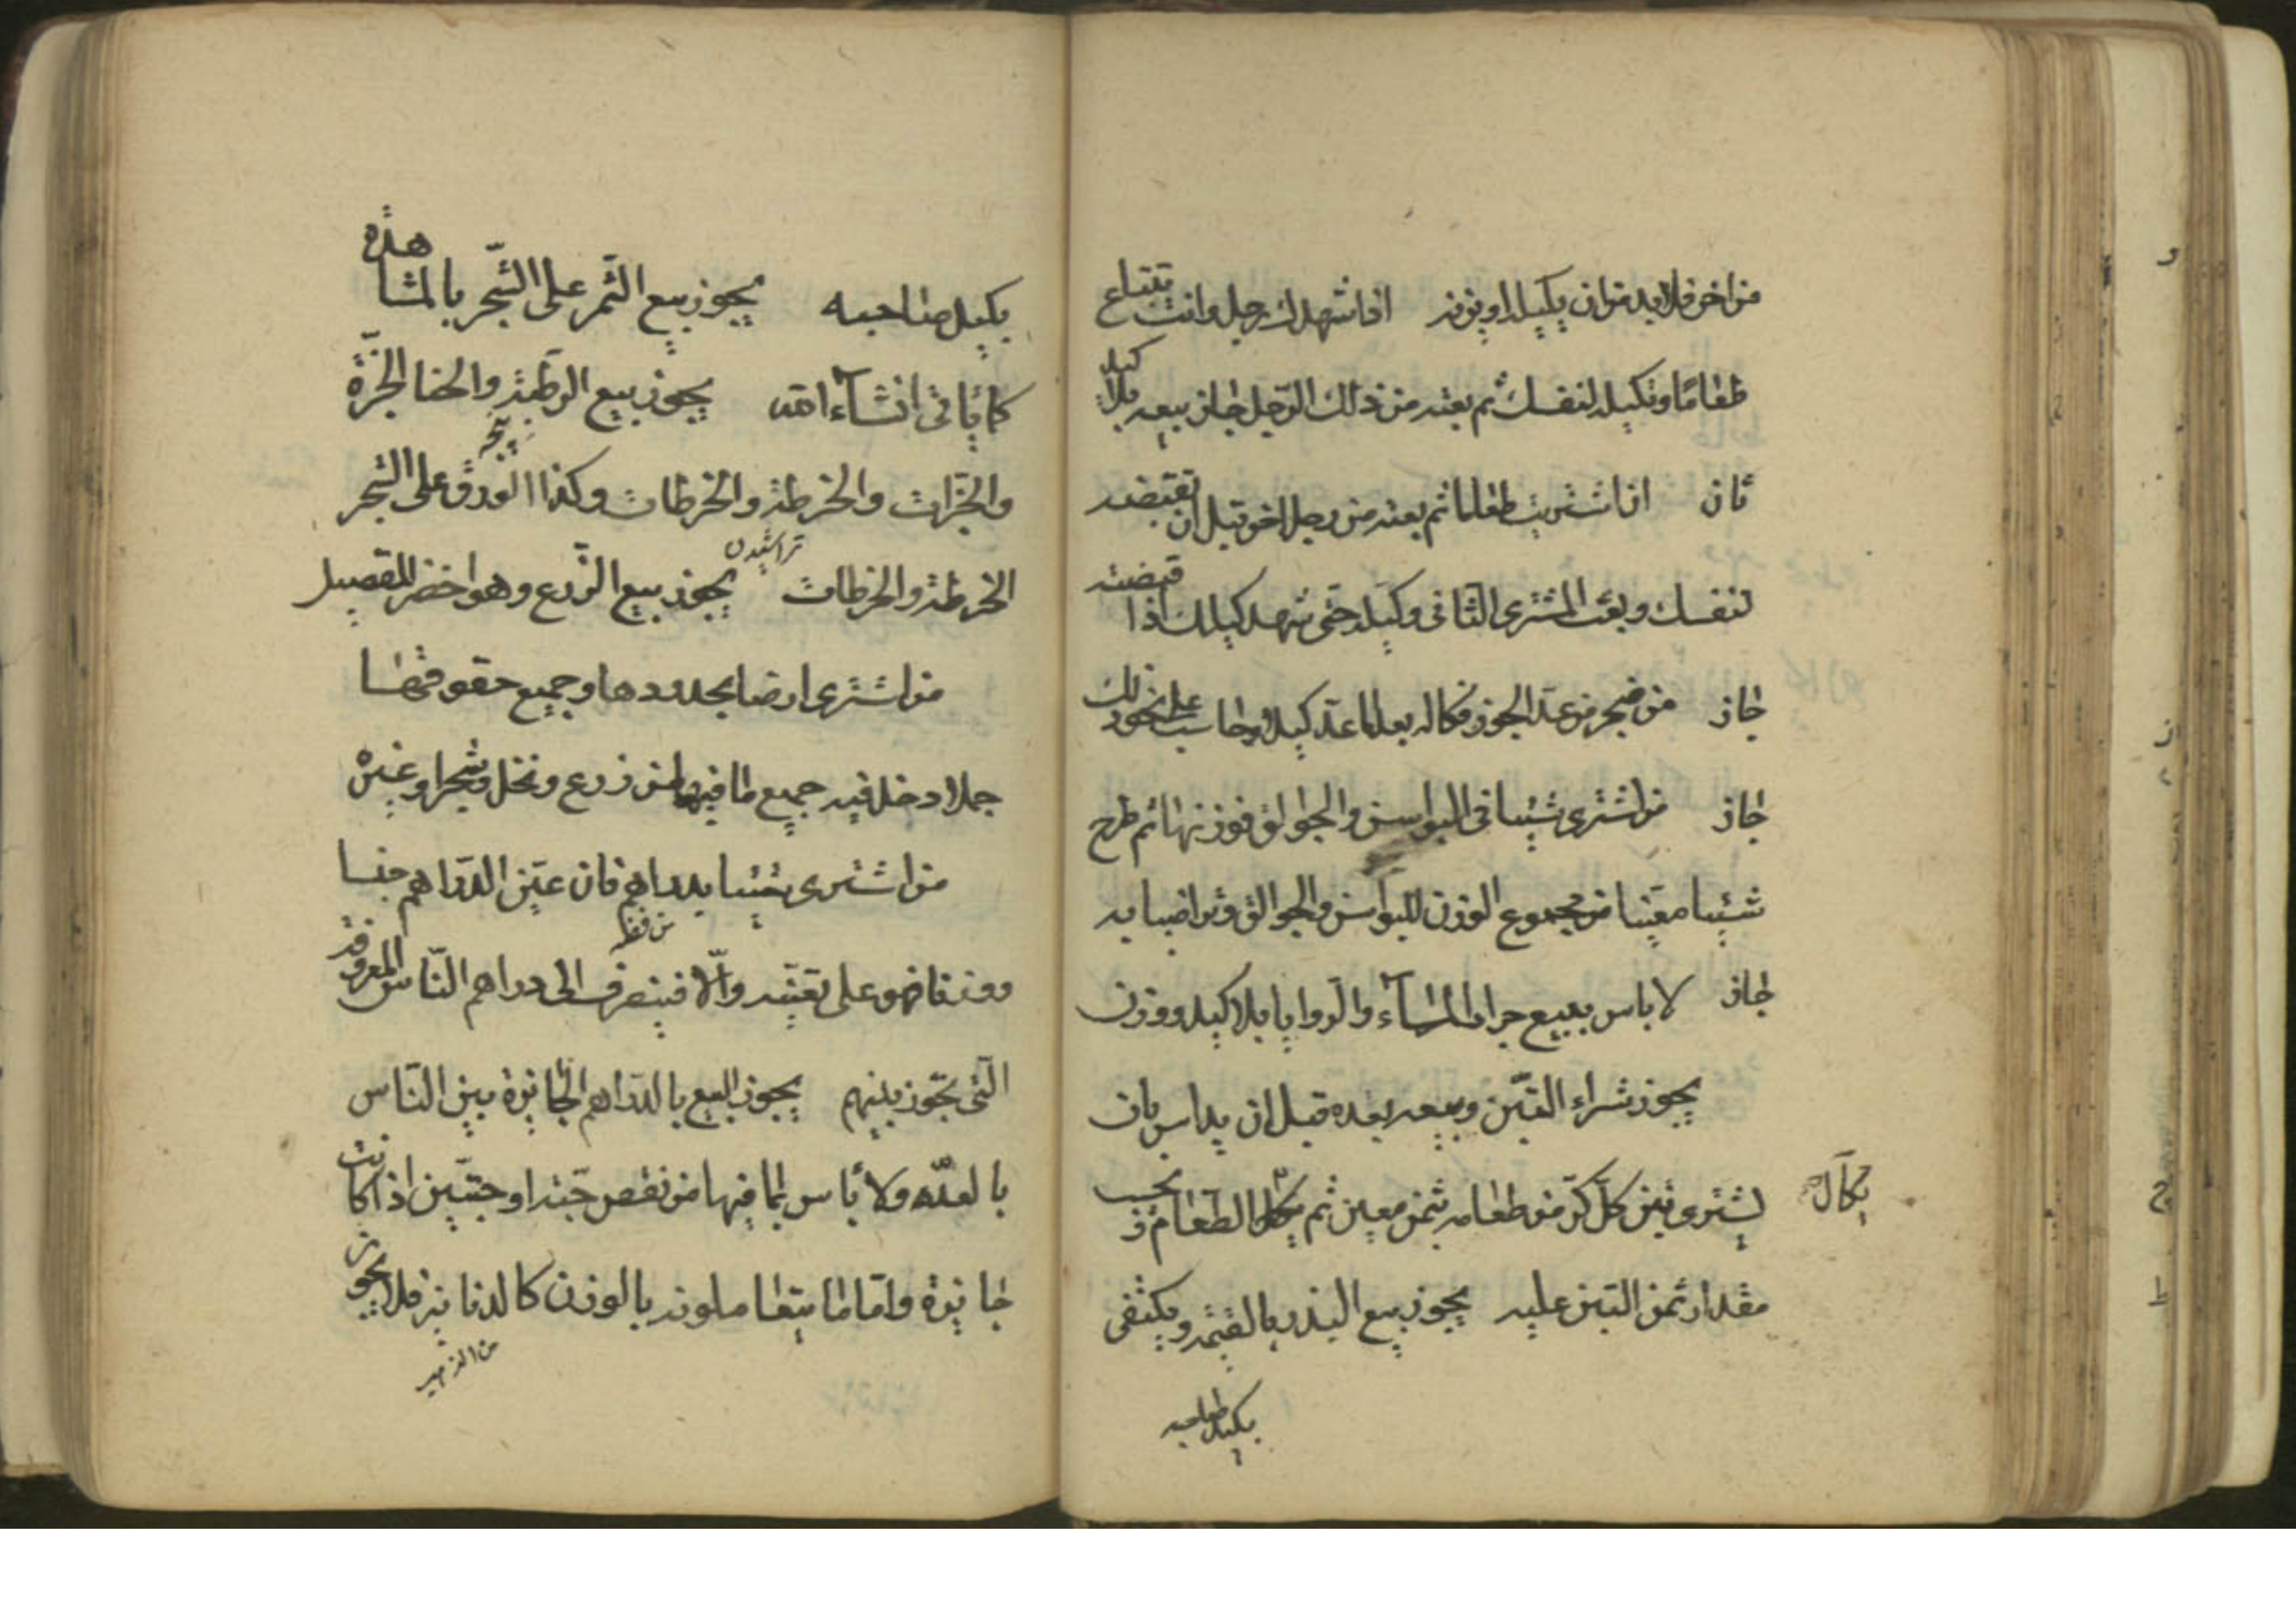 من اخر فلا بد من ان يكيله او يزنه اذا شهدك رجل وانت تبتاع
طعامًا وتكيله لنفسك ثم بعته من ذلك الرجل جاز بيعه بلا كيل
ثان اذا اشتريت طعاما ثم بعته من رجل اخر قبل ان تقبضه
لنفسك وبعث المشتري الثاني وكيله حتى شهد كيلك اذا قبضته
جاز من ضجر من عد الجوز فكاله بعد ما عد كيلا وحاسب على نحو ذلك
جاز من اشترى شيئا في البواسن والجوالق فوزنها ثم طرح
شيئا معينا من مجموع الوزن للبواسن والجوالق وتراضيا به
جاز لا باس ببيع جرار الماء والروايا بلا كيل ووزن
يجوز شراء التبن وبيعه بعده قبل ان يداس بان
يشترى تبن كل كر من طعامه بثمن معين ثم الطعام فيجب
يكال
مقدار ثمن التبن عليه يجوز بيع البذر بالقيمة ويكتفى
بكيل صاحبه
بكيل صاحبه يجوز بيع الثمر على الشجر بالمشاهدة
كما ياتى انشاء الله يجوز بيع الرطبة والحنا الجزة
والجزات والخرطة والخرطات وكذا الورق على الشجر
الخرطة والخرطات يجوز بيع الزرع وهو اخضر للقصيل
تراشيدن
من اشترى ارضا بحدودها وجميع حقوقها
جملا دخل فيه جميع ما فيها من زرع ونخل وشجر او غيره
من اشترى شيئا بدراهم فان عين الدراهم جنسا
ووزنا فهو على تعينه والا فينصرف الى دراهم الناس المعروفة
التي تجوز بينهم يجوز البيع بالدراهم الجايزة بين الناس
بالعدد ولا باس بما فيها من نقص حبة او حبتين اذا كانت
جايزة واما ما يتعاملونه بالوزن كالدنانير فلا يجوز